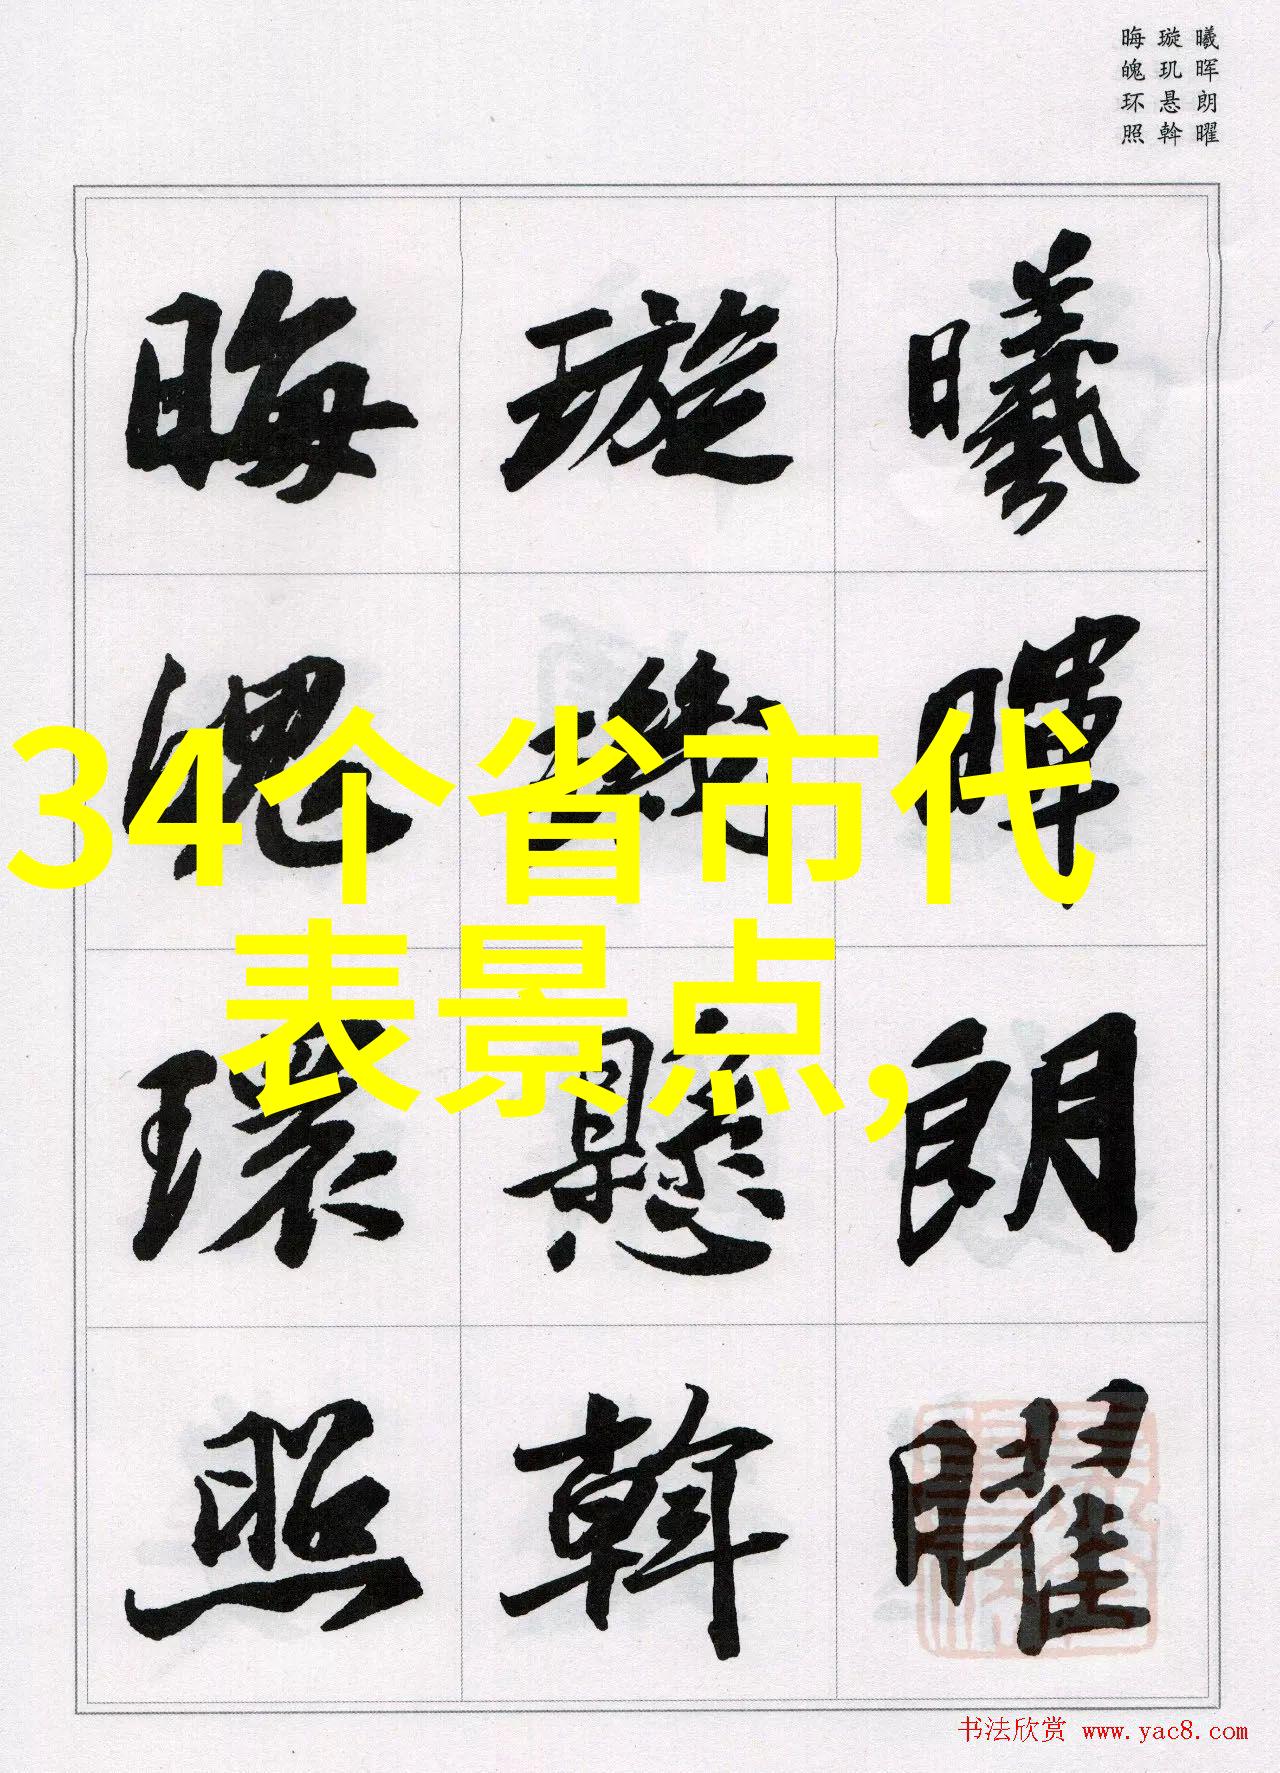 曦晖朗曜
璇玑悬斡
晦魄环照
曦暉朗曜
璇璣懸斡
晦魄環照
34个省市代
表景点,
书法欣赏 www.yac8.com